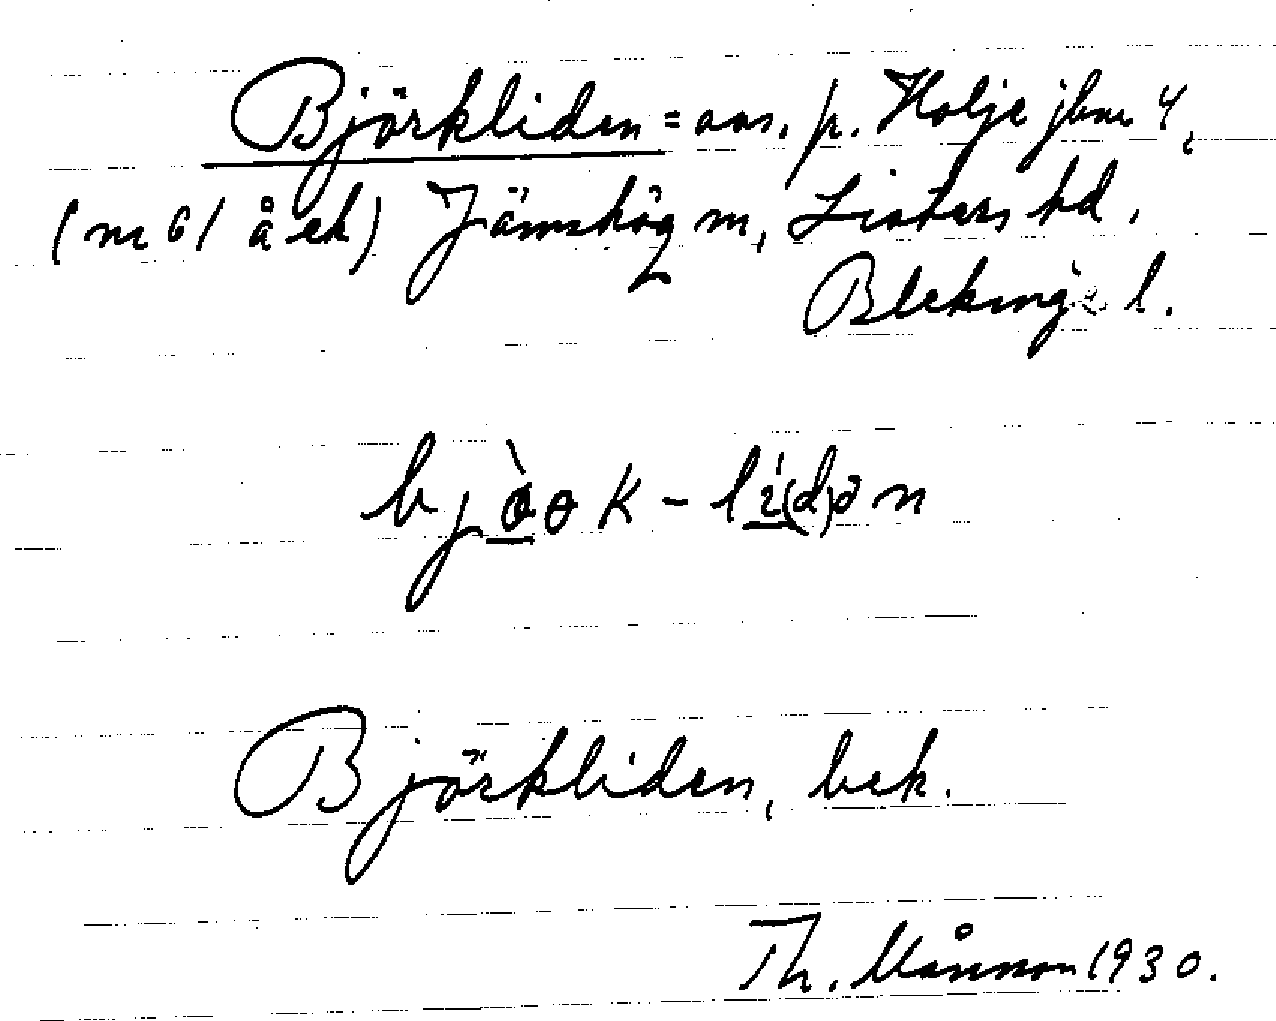 Björkliden = avs. p. Holje jbnr 4,
(nr 61 å ek) Jämshög sn, Listers hd,
Blekinge l.
bjòok-lí(d)ən
Björkliden, bek.
Th. Månsson 1930.